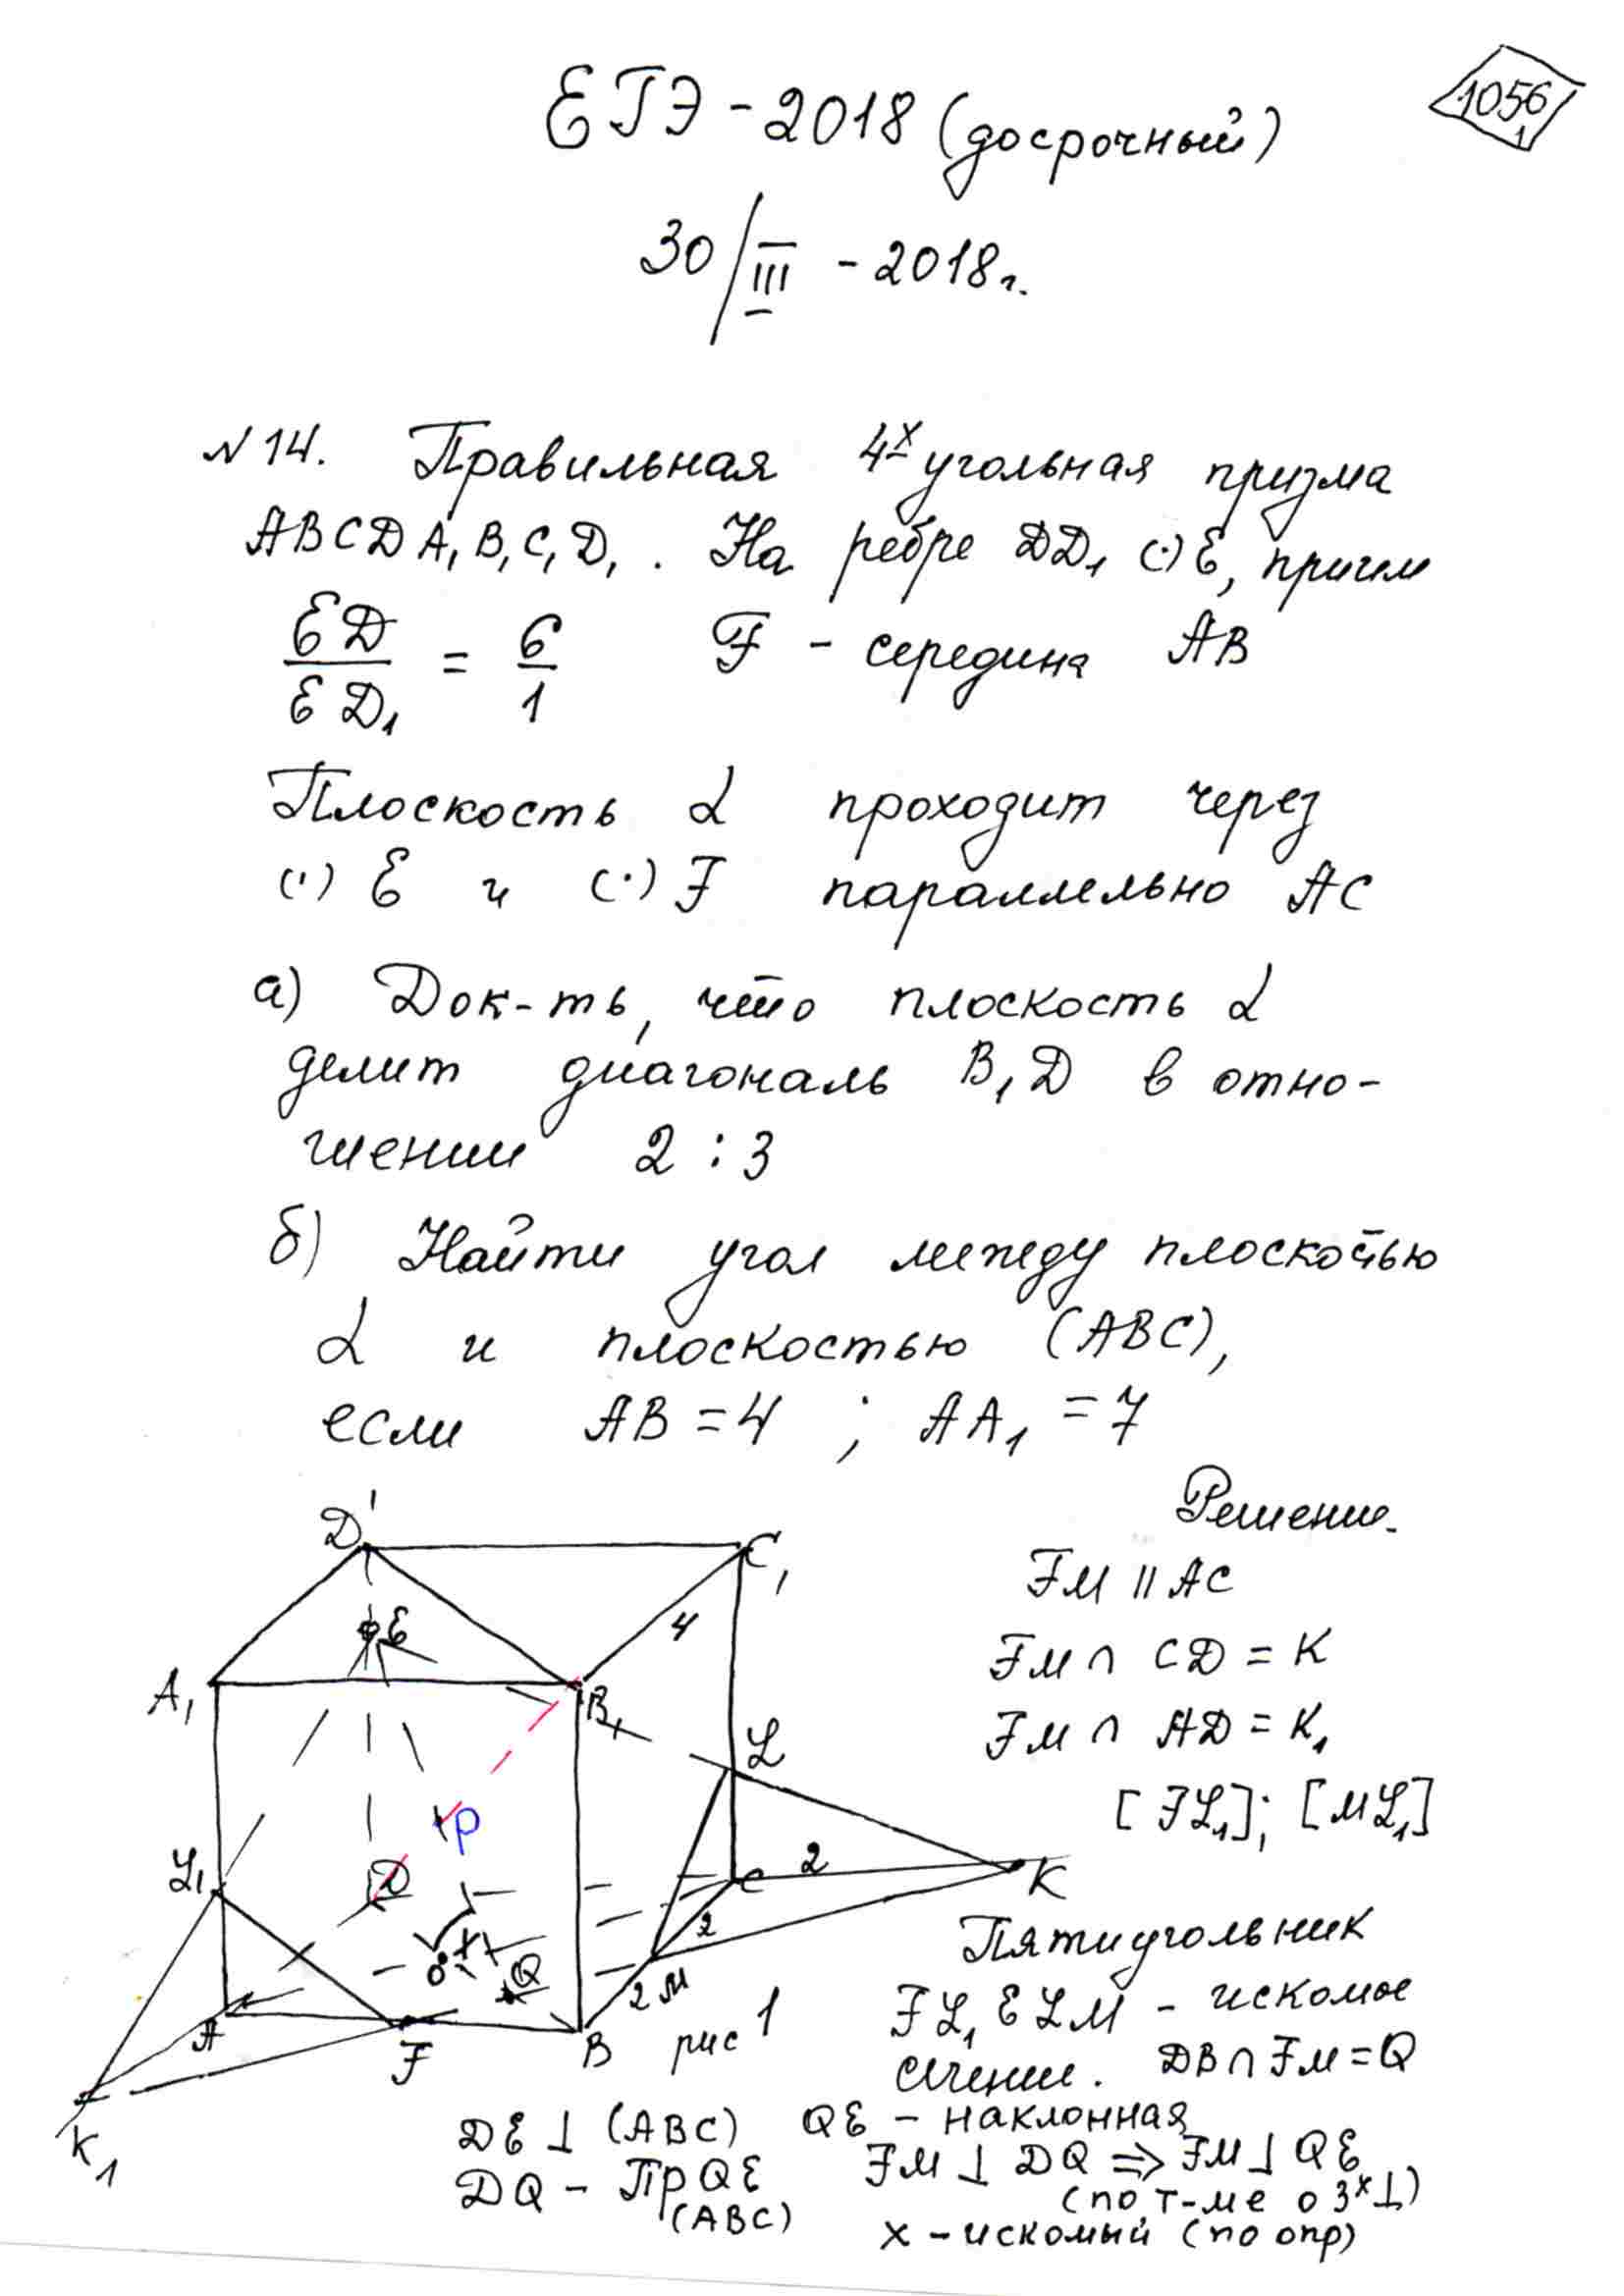 ЕГЭ - 2018 (досрочный)
1056
1
30/III - 2018 г.
№14. Правильная 4х угольная призма
ABCDA₁B₁C₁D₁. На ребре DD₁ (·) E, причем
ED/ED₁ = 6/1 F - середина AB
Плоскость α проходит через
(·) E и (·) F параллельно AC
а) Док-ть, что плоскость α
делит диагональ B₁D в отно-
шении 2 : 3
б) Найти угол между плоскостью
α и плоскостью (ABC),
если AB = 4 ; AA₁ = 7
Решение.
FM || AC
FM ∩ CD = K
FM ∩ AD = K₁
[FL₁]; [ML₁]
D₁
C₁
E
4
A₁
B₁
L
P
L₁
D
C
2
K
2
x
Q
2
M
A
F
B
рис 1
K₁
Пятиугольник
FL₁ELM - искомое
сечение. DB ∩ FM = Q
DE ⊥ (ABC) QE - наклонная
DQ - Пр QE (ABC) FM ⊥ DQ => FM ⊥ QE
(по т-ме о 3х ⊥)
x - искомый (по опр)